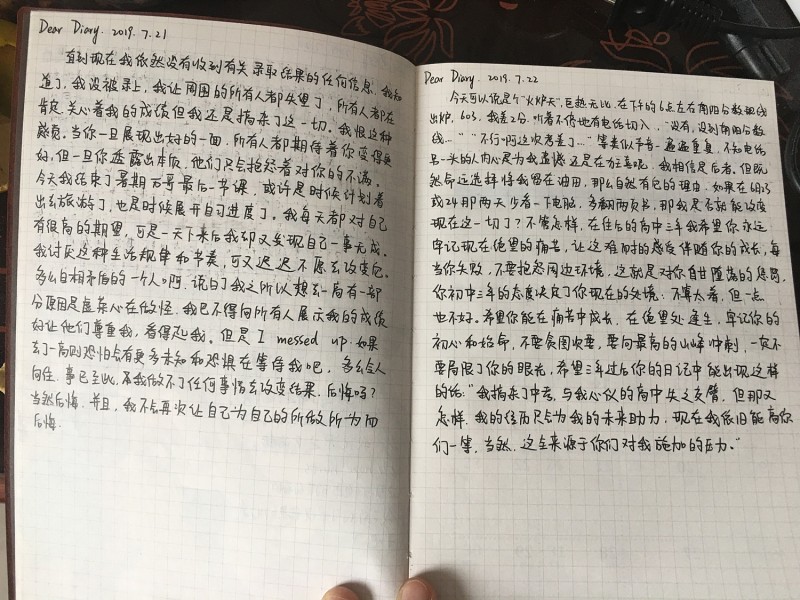 Dear Diary. 2019.7.21
直到现在我依然没有收到有关录取结果的任何信息,我知
道了,我没被录上,我让周围的所有人都失望了,所有人都在
肯定、关心着我的成绩但我还是搞杂了这一切。我恨这种
感觉。当你一旦展现出好的一面,所有人都期待着你变得更
好,但一旦你透露出本质,他们只会抱怨着对你的不满。
今天我结束了暑期万哥最后一节课,或许是时候计划着
出去旅游了,也是时候展开自习进度了。我每天都对自己
有很高的期望,可是一天下来后我却又发现自己一事无成。
我讨厌这种生活规律和节奏,可又迟迟不愿去改变它。
多么自相矛盾的一个人啊。说白了我之所以想去一高有一部
分原因是虚荣心在做怪,我巴不得向所有人展示我的成绩
好让他们尊重我,看得起我。但是 I messed up. 如果
去了一高则恐怕会有更多未知和恐惧在等待我吧,多么令人
向往。事已至此,我做不了任何事情去改变结果。后悔吗?
当然后悔,并且,我不会再次让自己为自己的所做所为而
后悔.
Dear Diary. 2019.7.22
今天可以说是个"火炉天",巨热无比,在下午的6点左右南阳分数线
出炉,603,我差2分.听着不停地有电话切入,"没有,没到南阳分数
线…" "不行啊这次考差了…"等类似声音一遍遍重复,不知电话
另一头的人内心是为我遗憾还是在力喜呢,我相信是后者。但既
然命运选择将我留在油田,那么自然有它的理由.如果在6月23
或24那两天少看一下电脑,多翻两页书,那我是否就能改变
现在这一切了?不管怎样,在往后的高中三年我希望你永远
牢记现在绝望的痛苦,让这难耐的感受伴随你的成长,每
当你失败,不要抱怨周边环境,这就是对你自甘堕落的惩罚,
你初中三年的态度决定了你现在的处境:不算太差,但一点
也不好。希望你能在痛苦中成长,在绝望处逢生,牢记你的
初心和始命,不要贪图次要,要向最高的山峰冲刺,一定不
要局限了你的眼光,希望三年过后你的日记中能出现这样
的话:"我搞杂了中考,与我心仪的高中失之交臂,但那又
怎样,我的经历只会为我的未来助力,现在我依旧能高你
们一等,当然,这全来源于你们对我施加的压力。"